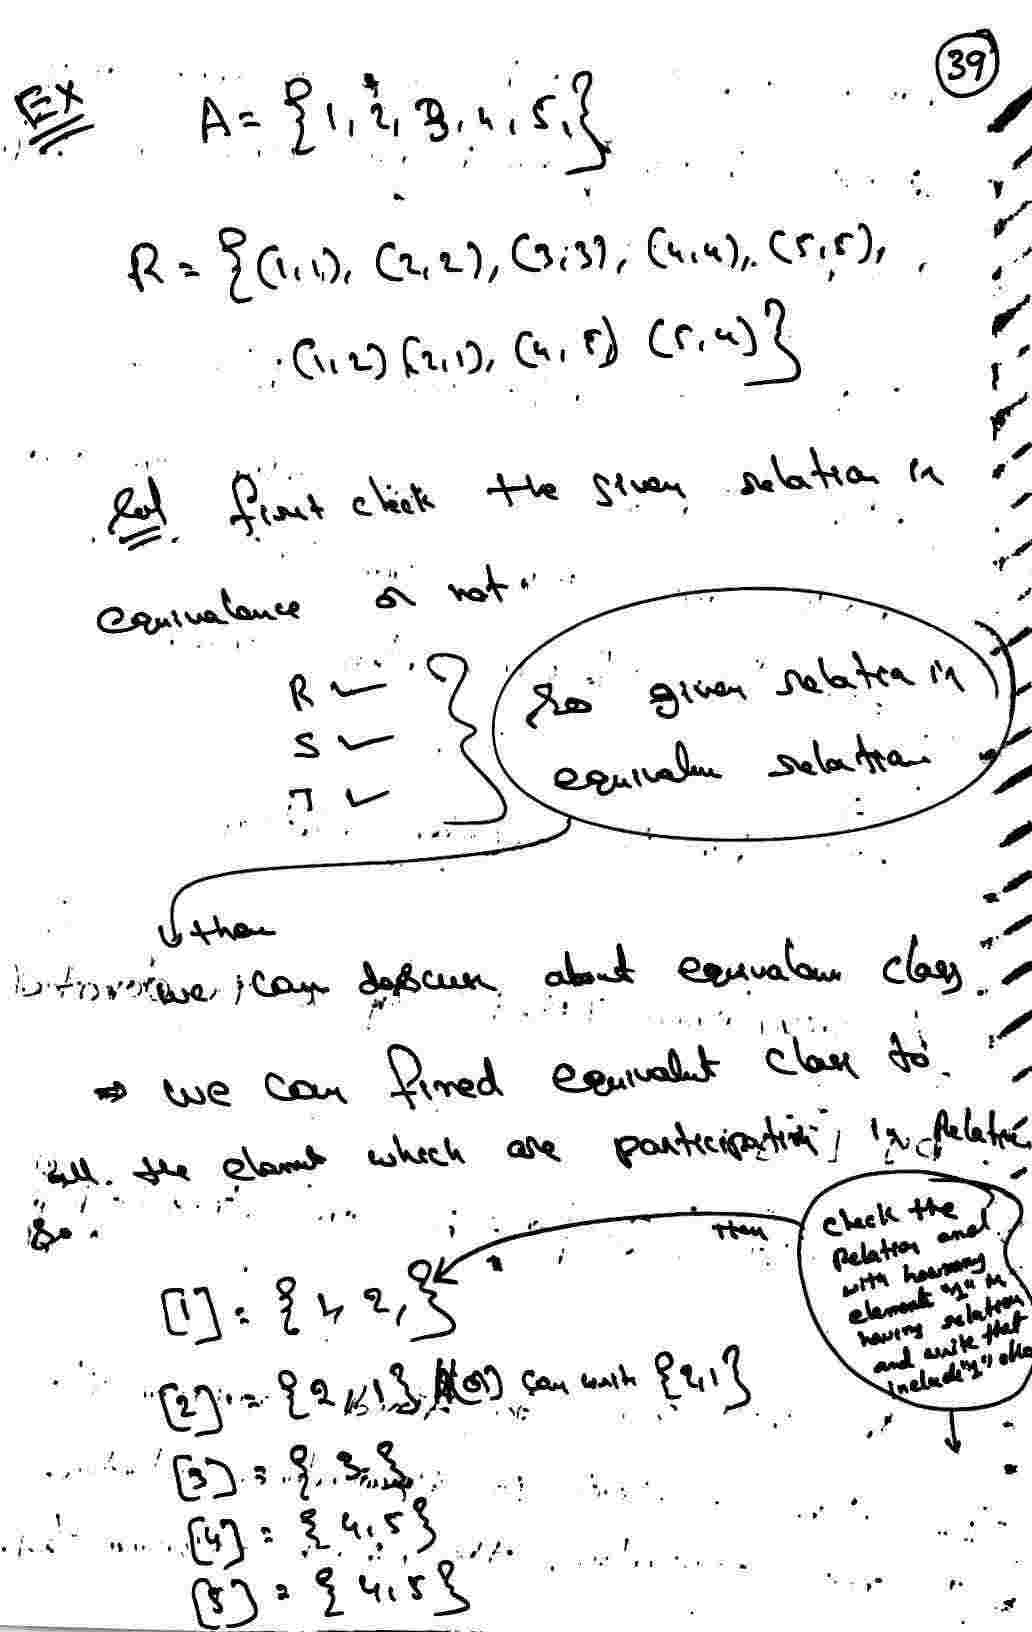 39
Ex A = {1, 2, 3, 4, 5,}
R = {(1,1), (2,2), (3,3), (4,4), (5,5),
(1,2) (2,1), (4,5) (5,4)}
Sol first check the given relation is
equivalance or not
R ✓
S ✓
T ✓
So given relation is
equivalen relation
then
we can discuss about equivalan class
⇒ we can fined equivalut class to
all the elamnt which are participating in Relation
So
Then
check the
Relation and
with howmany
element "1" is
having relation
and write that
include "1" also
[1] = {1, 2,}
[2] = {2, 1} (or) can writ {2,1}
[3] = {3}
[4] = {4,5}
[5] = {4,5}